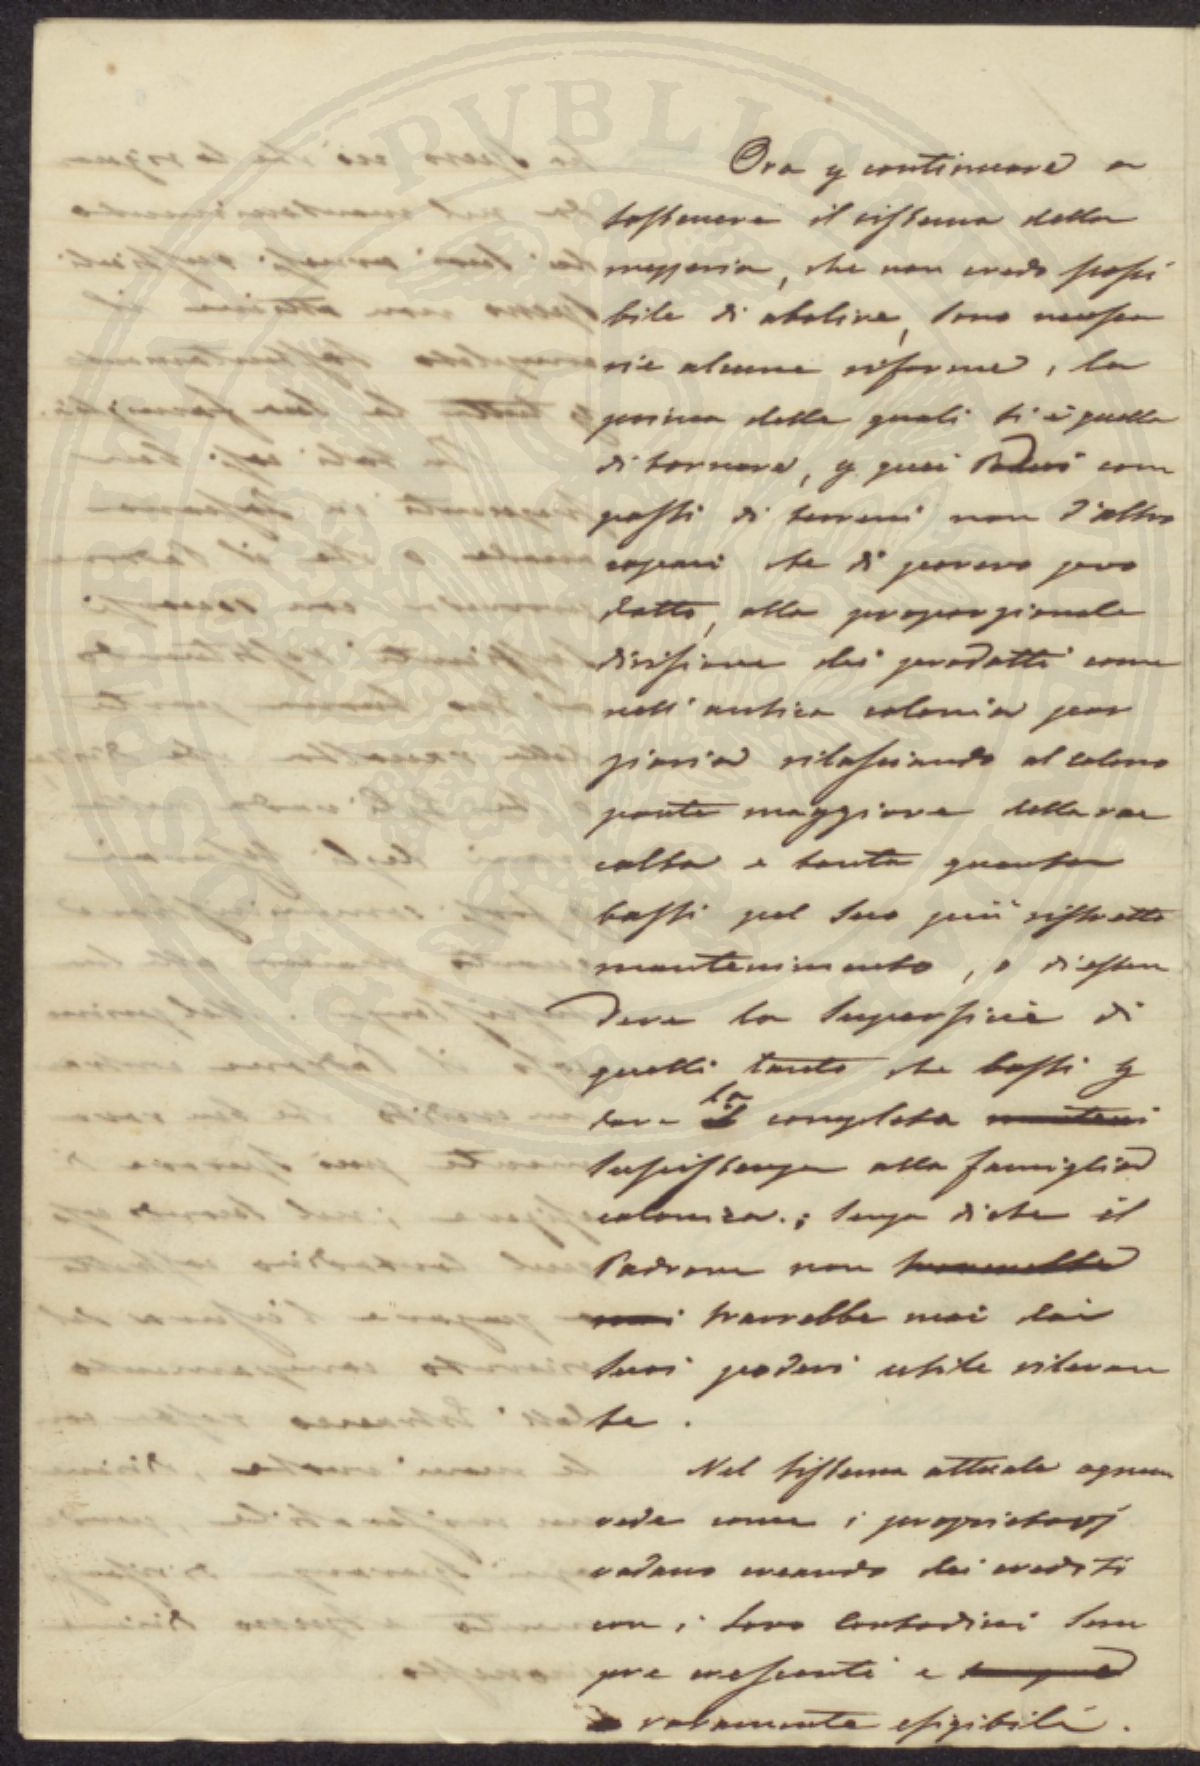 PVBLIC
Ora p continuare a
sostenere il sistema della
mezzeria, che non credo possi
bile di abolire, sono necessa
rie alcune riforme, la
prima delle quali si è quella
di tornare, p quei Poderi com
posti di terreni non d'altro
capaci che di povero pro
dotto, alla proporzionale
divisione dei prodotti come
nell'antica colonia par
ziaria rilasciando al colono
parte maggiore della rac
colta e tanta quanta
basti pel suo più ristretto
mantenimento, o di esten
dere la superficie di
quelli tanto che basti p
dare la completa manteni
sussistenza alla famiglia
colonica.; senza di che il
Padrone non
mai trarrebbe mai dai
suoi poderi utile rilevan
te.
Nel sistema attuale ognun
vede come i proprietarj
vadano creando dei crediti
con i loro Contadini sem
pre crescenti e
raramente esigibili.